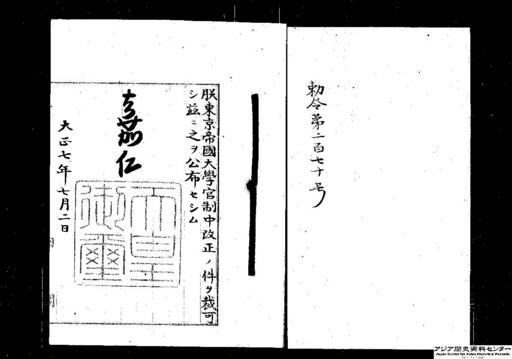 勅令第二百七十号
朕東京帝國大學官制中改正ノ件ヲ裁可
シ茲ニ之ヲ公布セシム
嘉仁
天皇御璽
大正七年七月二日
アジア歴史資料センター
Japan Center for Asian Historical Records